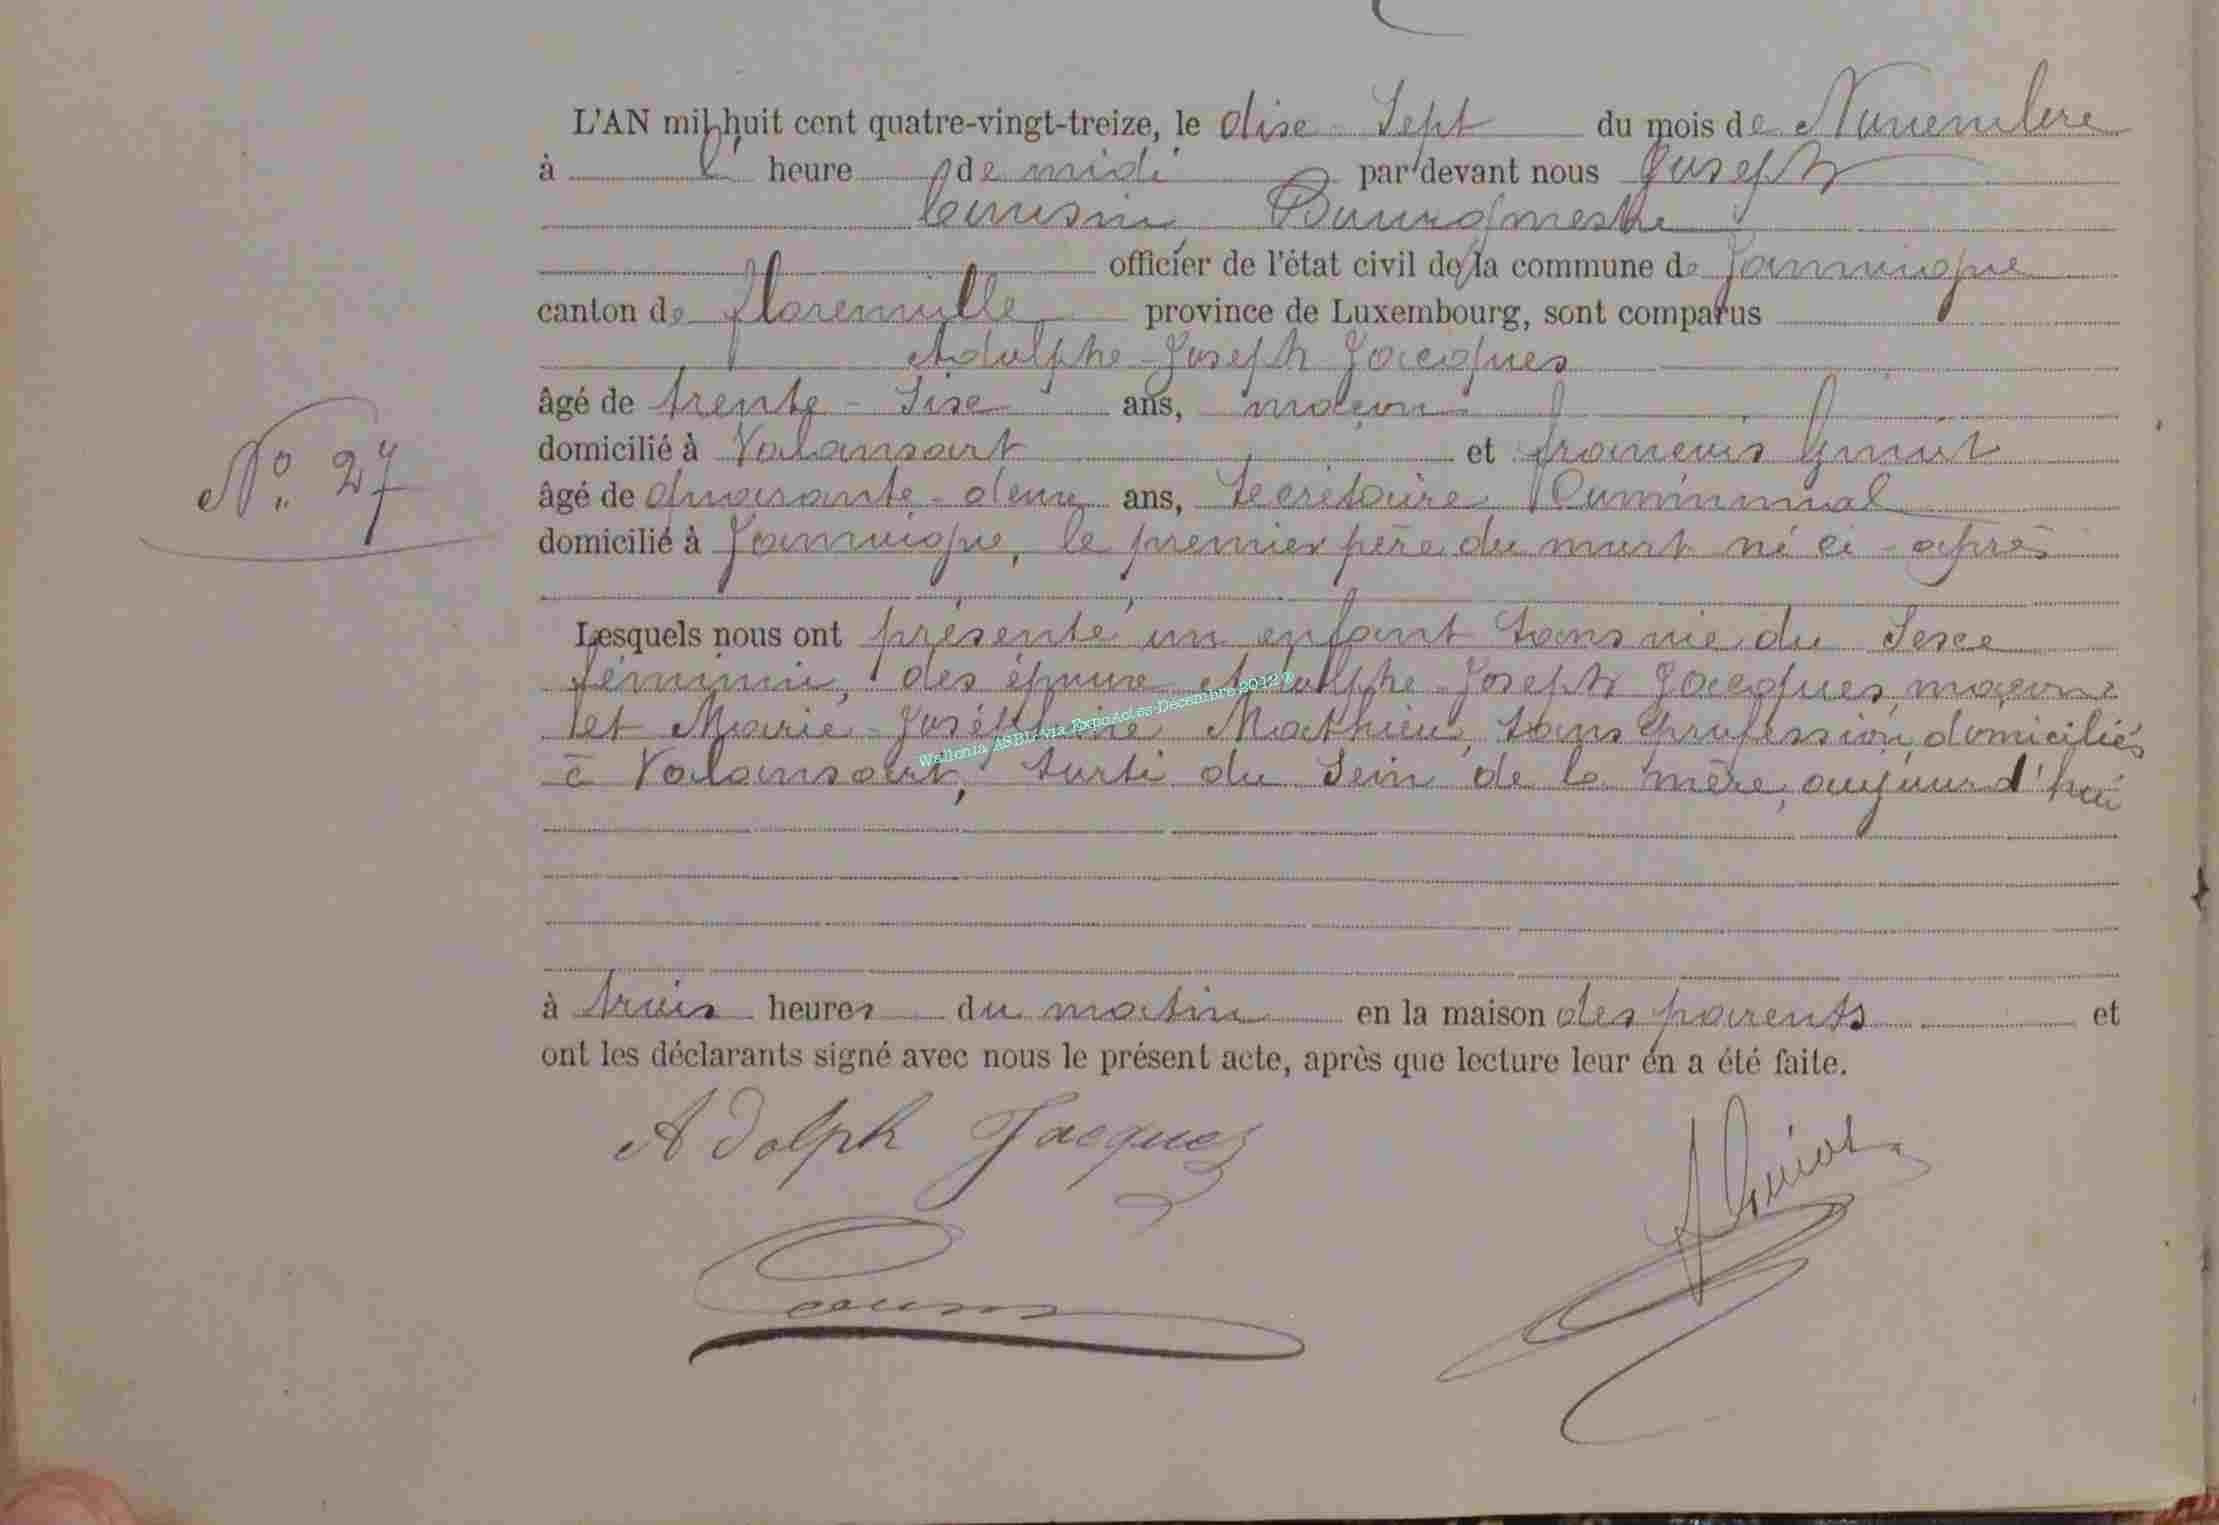 L'AN mil huit cent quatre-vingt-treize, le dix-Sept du mois de Novembre
à l' heure de midi par devant nous Joseph
Cousin, Bourgmestre
officier de l'état civil de la commune de Jamoigne
canton de florenville province de Luxembourg, sont comparus
Adolphe-Joseph Jacques
âgé de trente-Six ans, maçon
domicilié à Valansart et françois Guiot
âgé de quarante-deux ans, Secrétaire Communal
N° 27
domicilié à Jamoigne, le premier père du mort né ci-après
Lesquels nous ont présenté un enfant Sans vie du Sexe
féminin, des époux Adolphe-Joseph Jacques, maçon
et Marie-Joséphine Mathieu, Sans profession, domiciliés
à Valansart, Sorti du Sein de la mère, aujourd'hui
Wallonia ASBL via ExpoActes-Décembre 2012
à trois heures du matin en la maison des parents et
ont les déclarants signé avec nous le présent acte, après que lecture leur en a été faite.
Adolph Jacques
Guiot
Cousin